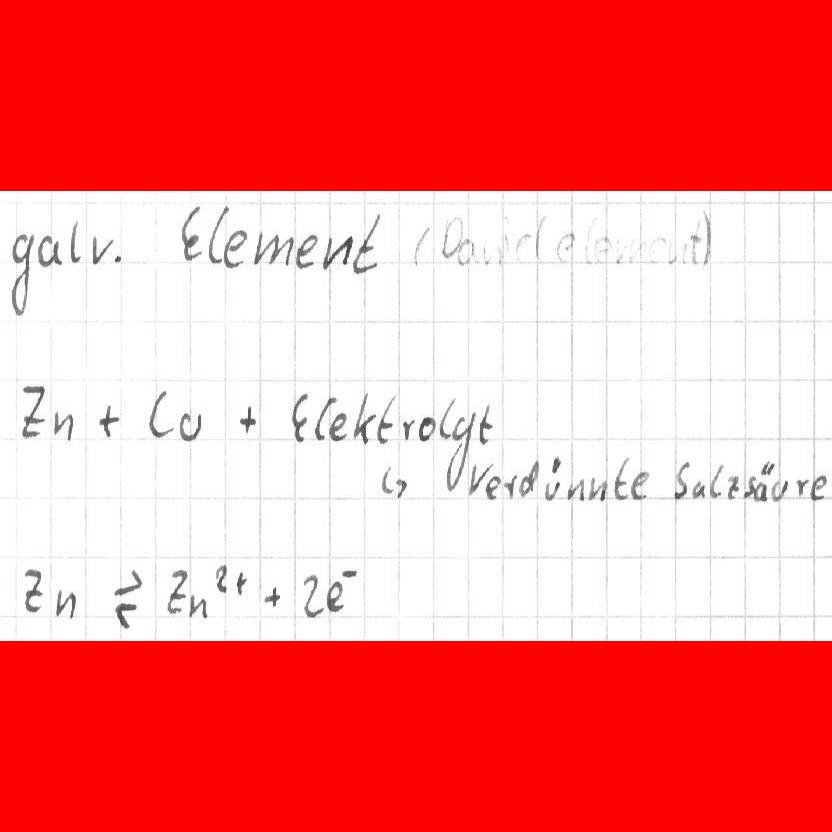 galv. Element (Danielelement)
Zn + Cu + Elektrolyt
↳ Verdünnte Salzsäure
Zn ⇌ Zn²⁺ + 2e⁻